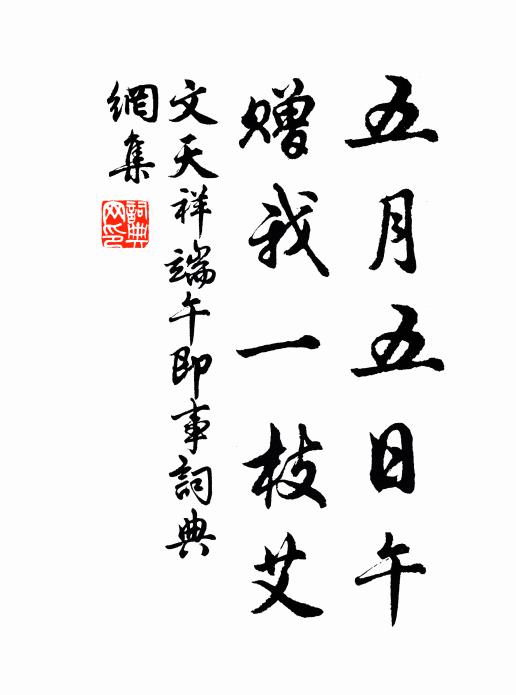 五月五日午
贈我一枝艾
文天祥端午即事詞典
網集
詞典
网印